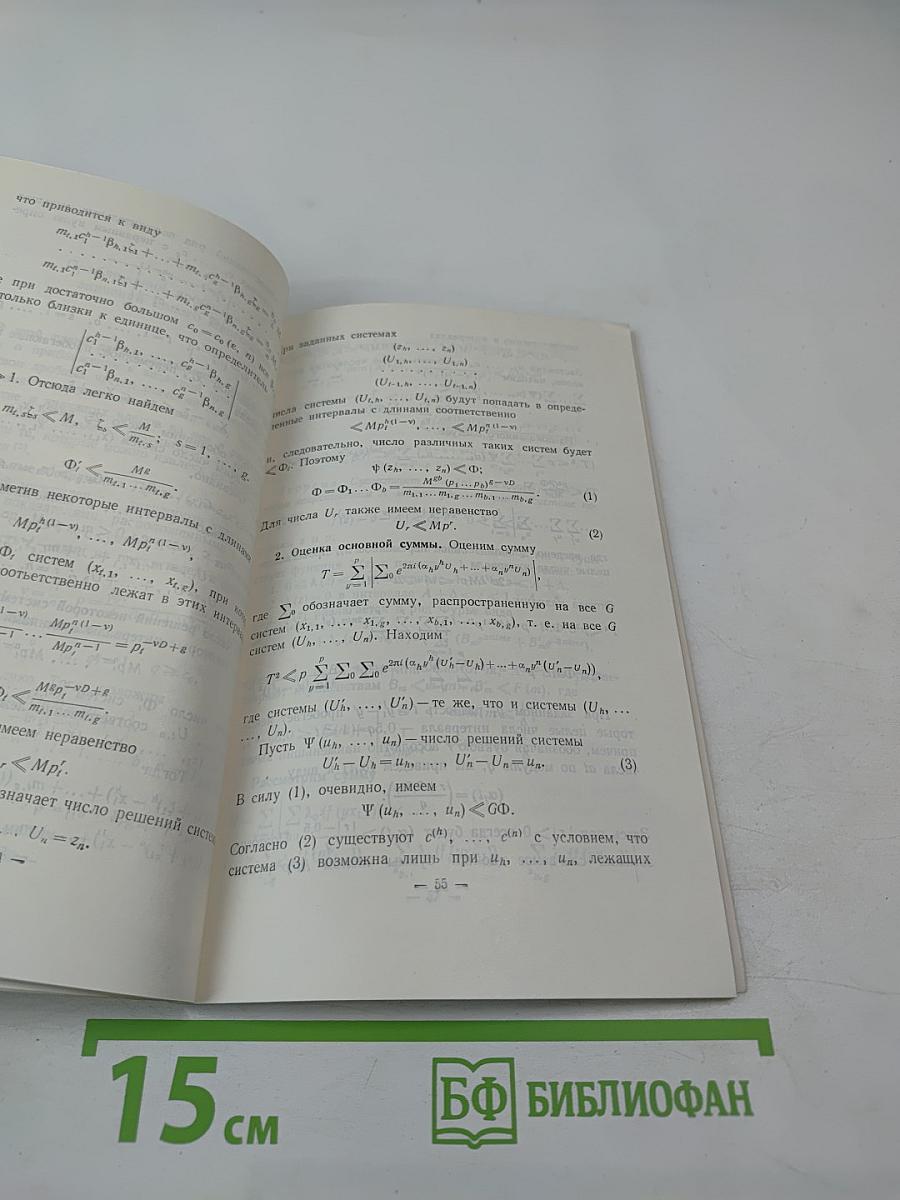 что приводится к виду
m_{t,1}c_1^{h-1}β_{h,1}ζ_1+...+m_{t,g}c_g^{h-1}β_{h,g}ζ_g
. . . . . . . . . . . . .
m_{t,1}c_1^{n-1}β_{n,1}ζ_1+...+m_{t,g}c_g^{n-1}β_{n,g}ζ_g
при достаточно большом c_0=c_0(ε, n) все β
только близки к единице, что определитель
|c_1^{h-1}β_{h,1}, ..., c_g^{h-1}β_{h,g}|
. . . . . . . . . . .
|c_1^{n-1}β_{n,1}, ..., c_g^{n-1}β_{n,g}|
≫1. Отсюда легко найдем
m_{t,s}ζ_s≪M, ζ_s≪M/m_{t,s}; s=1, ..., g,
Φ'_t≪M^g/(m_{t,1}...m_{t,g}).
метив некоторые интервалы с длинами
Mp_t^{h(1-ν)}, ..., Mp_t^{n(1-ν)},
Φ_t систем (x_{t,1}, ..., x_{t,g}), при
соответственно лежат в этих
... Mp_t^{n(1-ν)}/Mp_t^{n-1}=p_t^{-νD+g}
Φ_t≪M^g p_t^{-νD+g}/(m_{t,1}...m_{t,g}).
имеем неравенство
≪Mp_t^r.
значает число решений
U_n=z_n.
при заданных системах
(z_h, ..., z_n)
(U_{1,h}, ..., U_{1,n})
. . . . . . . . . .
(U_{t-1,h}, ..., U_{t-1,n})
числа системы (U_{t,h}, ..., U_{t,n}) будут попадать в опреде-
ленные интервалы с длинами соответственно
≪Mp_t^{h(1-ν)}, ..., ≪Mp_t^{n(1-ν)}
и, следовательно, число различных таких систем будет
≪Φ_t. Поэтому
ψ(z_h, ..., z_n)≪Φ;
Φ=Φ_1...Φ_b=M^{gb}(p_1...p_b)^{g-νD}/(m_{1,1}...m_{1,g}...m_{b,1}...m_{b,g}). (1)
Для числа U_r также имеем неравенство
U_r≪Mp^r. (2)
2. Оценка основной суммы. Оценим сумму
T=∑_{y=1}^{p}|∑_0 e^{2πi(α_h y^h U_h+...+α_n y^n U_n)}|,
где ∑_0 обозначает сумму, распространенную на все G
систем (x_{1,1}, ..., x_{1,g}, ..., x_{b,1}, ..., x_{b,g}), т. е. на все G
систем (U_h, ..., U_n). Находим
T²≪p∑_{y=1}^{p}∑_0∑_0 e^{2πi(α_h y^h(U'_h−U_h)+...+α_n y^n(U'_n−U_n))},
где системы (U'_h, ..., U'_n)—те же, что и системы (U_h, ...
..., U_n).
Пусть Ψ(u_h, ..., u_n)—число решений системы
U'_h−U_h=u_h, ..., U'_n−U_n=u_n. (3)
В силу (1), очевидно, имеем
Ψ(u_h, ..., u_n)≪GΦ.
Согласно (2) существуют c^{(h)}, ..., c^{(n)} с условием, что
система (3) возможна лишь при u_h, ..., u_n, лежащих
— 55 —
15 см
БФ БИБЛИОФАН